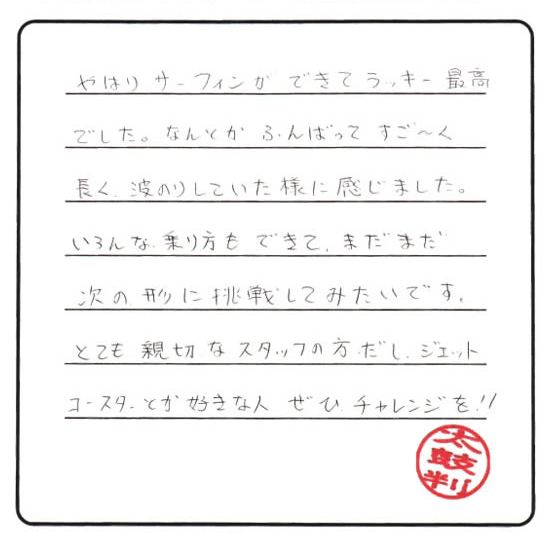 やはり サーフィンが できて ラッキー 最高
でした。なんとか ふんばって すご〜く
長く、波のりしていた様に感じました。
いろんな 乗り方も できて、まだまだ
次の 形に 挑戦してみたいです。
とても 親切な スタッフの方だし、ジェット
コースターとか好きな人 ぜひ チャレンジを!!
太
鼓
判